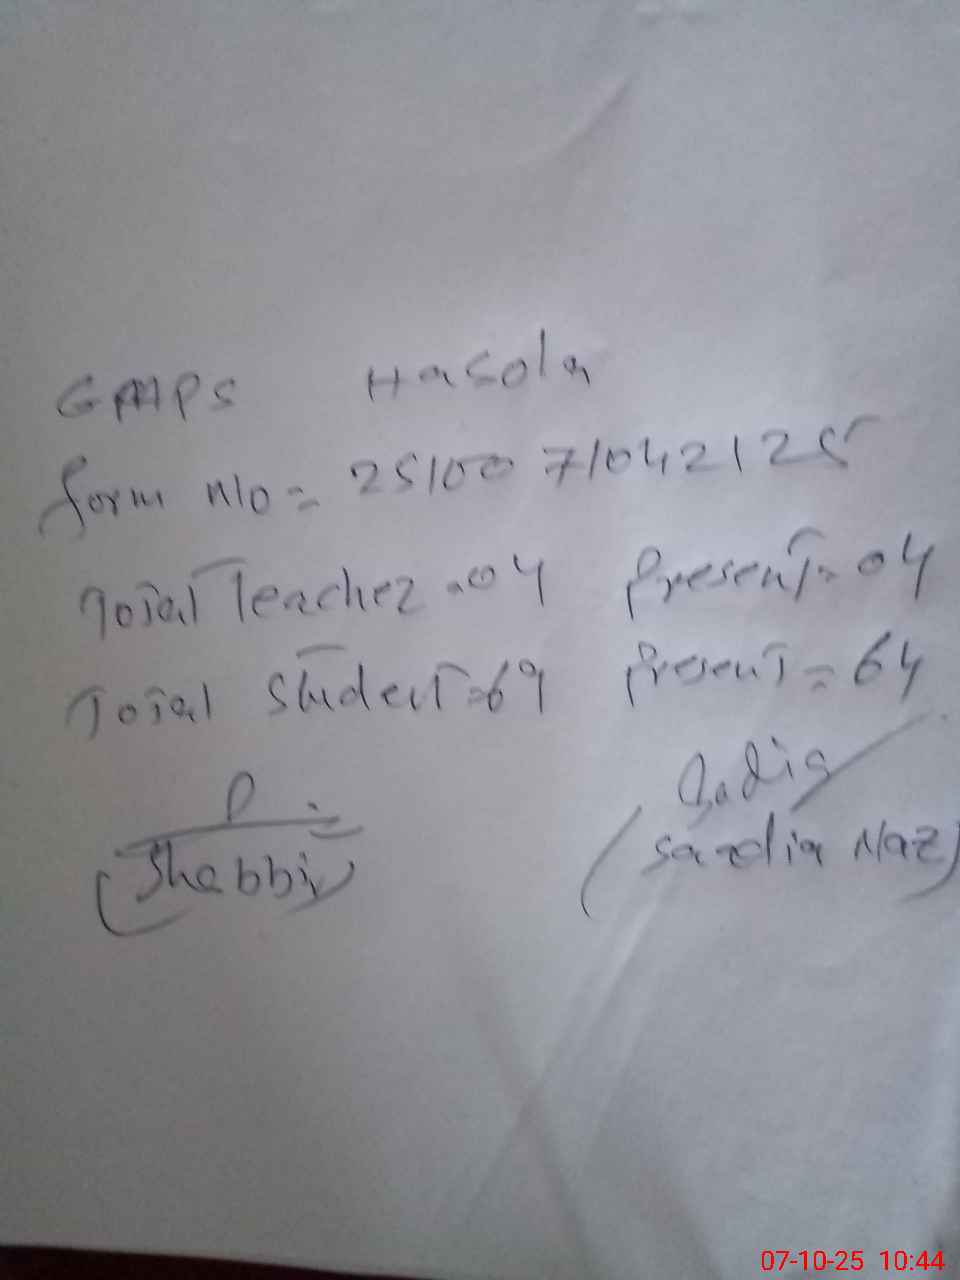 GMPS Hasola
form No = 25100 71042125
Total Teacher = 04 Present = 04
Total Student = 69 Present = 64
Sadia
(Shabbir) (Saadia Naz)
07-10-25 10:44